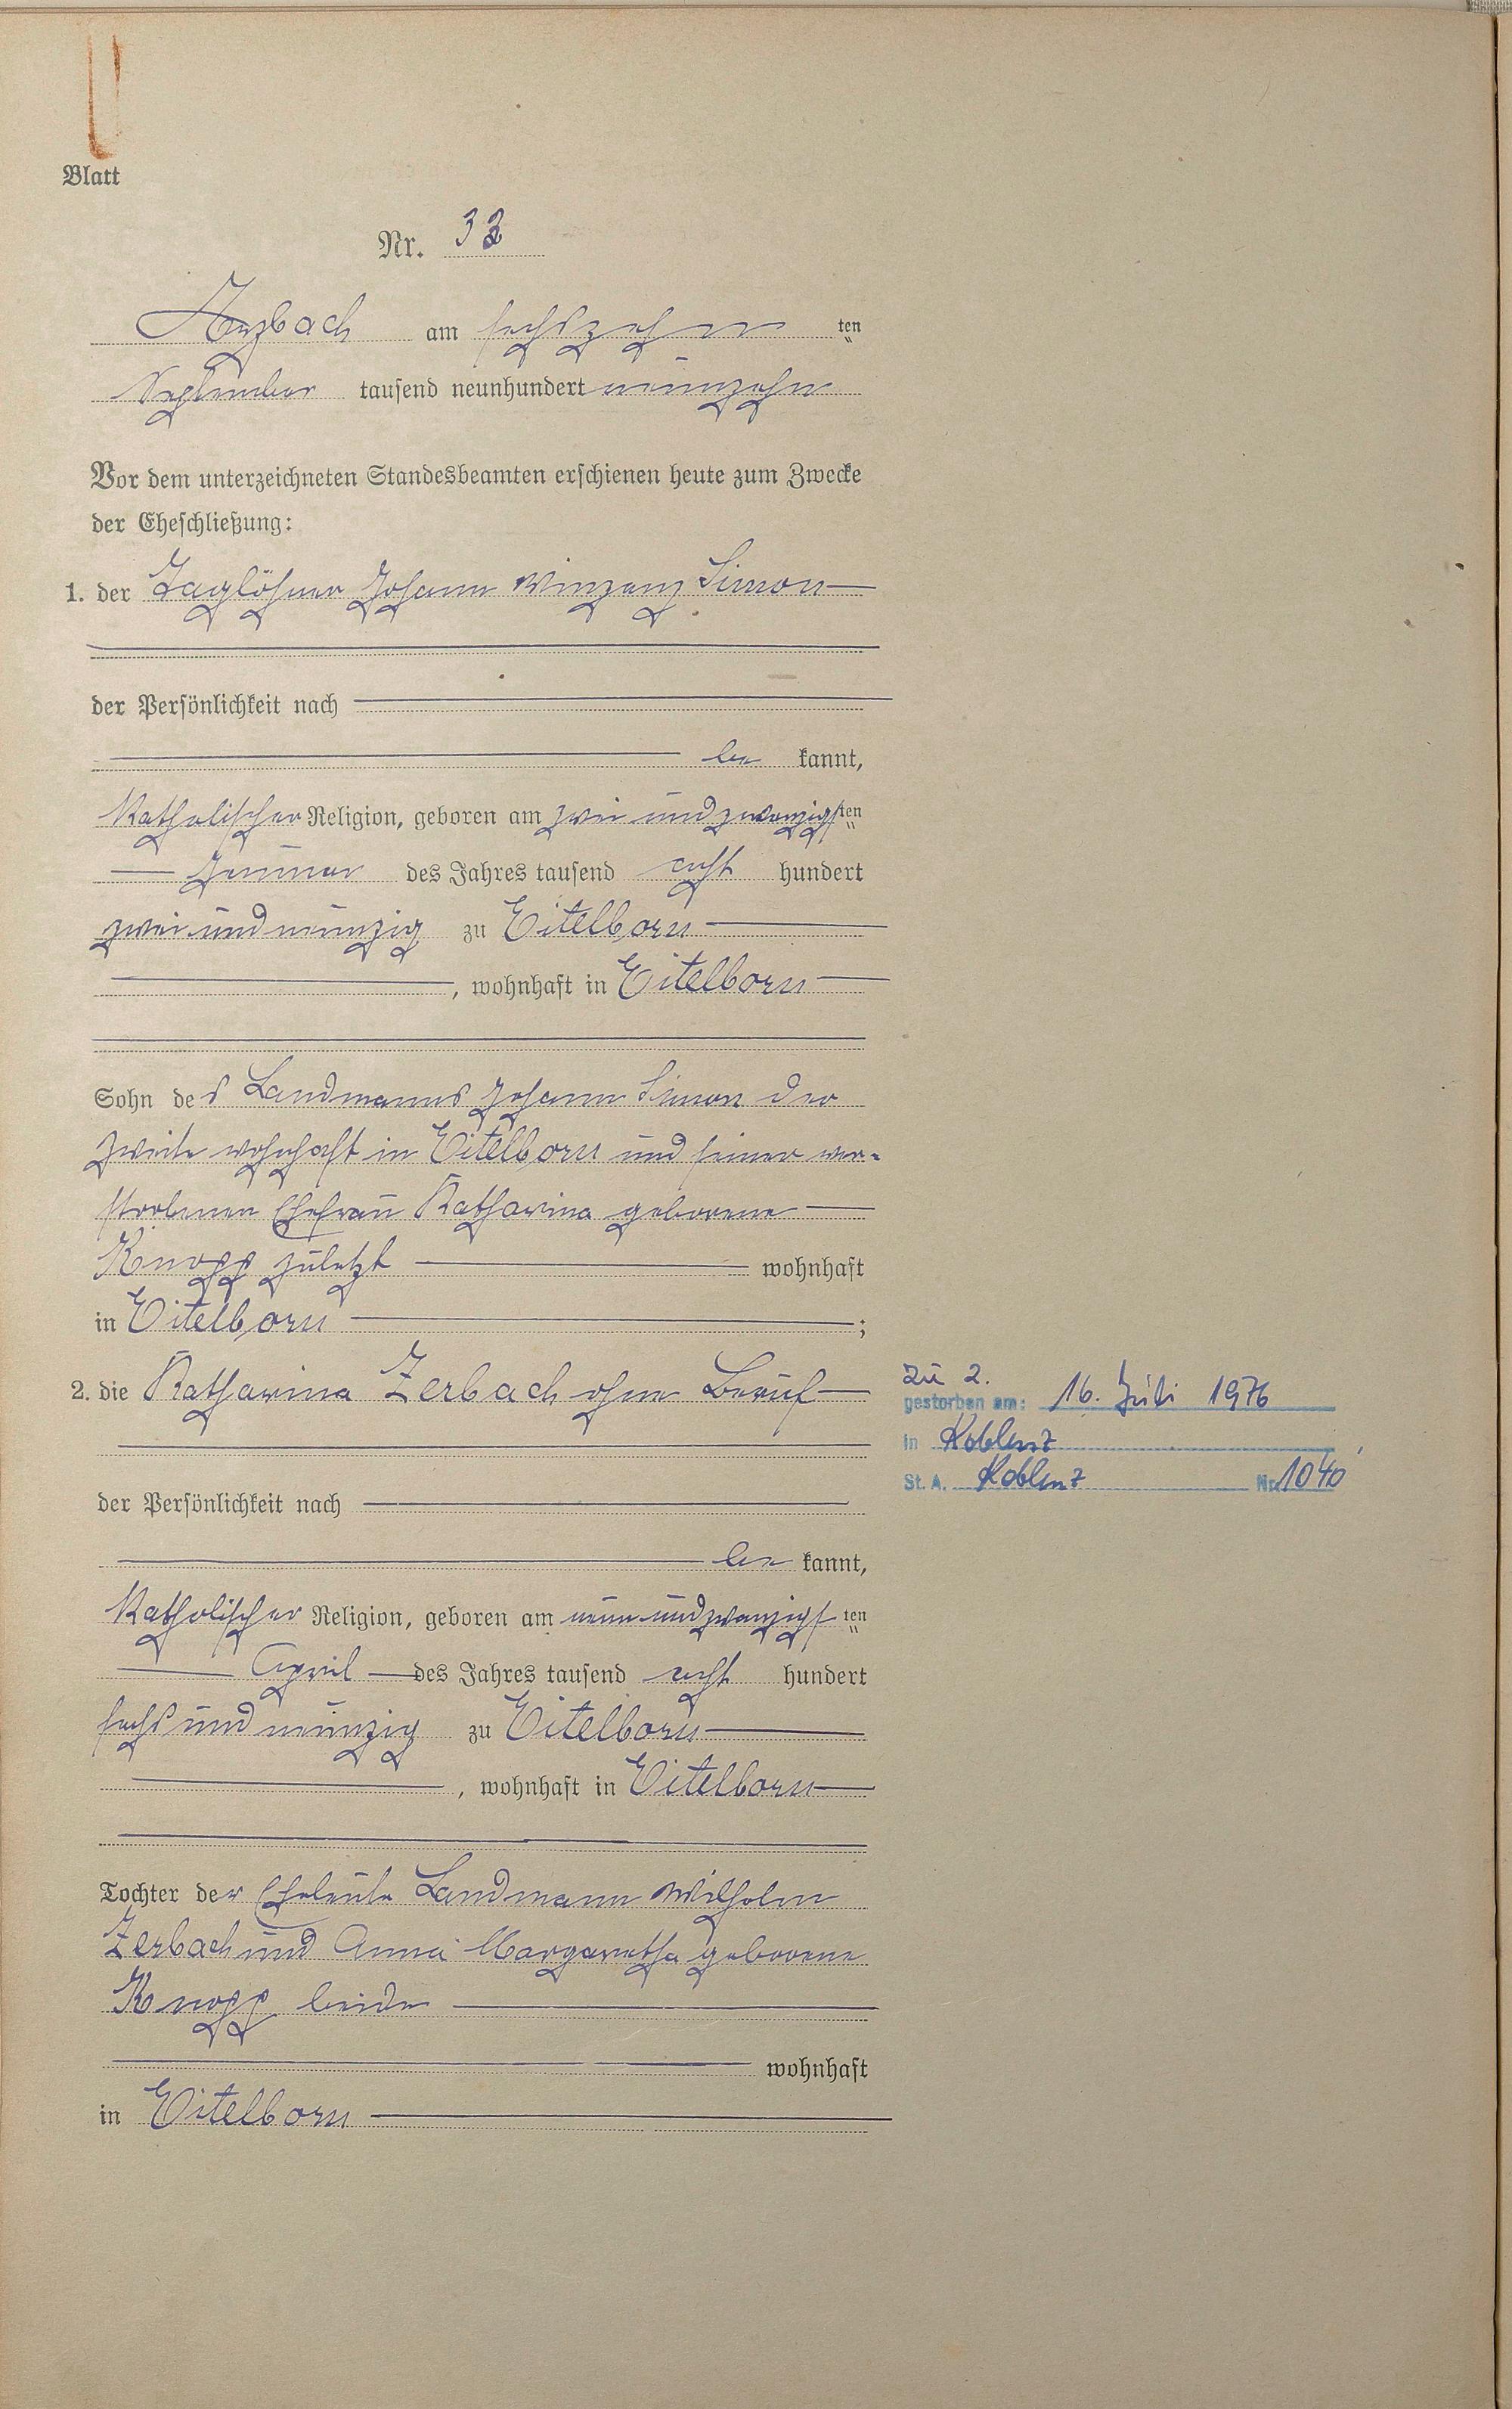 Blatt
Nr. 33
Arzbach am sechszehn ten
September tausend neunhundert neunzehn
Vor dem unterzeichneten Standesbeamten erschienen heute zum Zwecke
der Eheschließung:
1. der Taglöhner Johann Winzenz Simon
der Persönlichkeit nach
be kannt,
Katholischer Religion, geboren am zwei und zwanzigsten
Januar des Jahres tausend acht hundert
zwei und neunzig zu Eitelborn
, wohnhaft in Eitelborn
Sohn des Landmanns Johann Simon der
Zweite wohnhaft in Eitelborn und seiner ver-
storbenen Ehefrau Katharina geborene
Knopp zuletzt wohnhaft
in Eitelborn ;
2. die Katharina Zerbach ohne Beruf
der Persönlichkeit nach
be kannt,
Katholischer Religion, geboren am neun und zwanzigs ten
April des Jahres tausend acht hundert
sechs und neunzig zu Eitelborn
, wohnhaft in Eitelborn
Tochter der Eheleute Landmann Wilhelm
Zerbach und Anna Margaretha geborene
Knopp beide
wohnhaft
in Eitelborn
Zu 2.
gestorben am: 16. Juli 1976
in Koblenz
St. A. Koblenz Nr. 1040